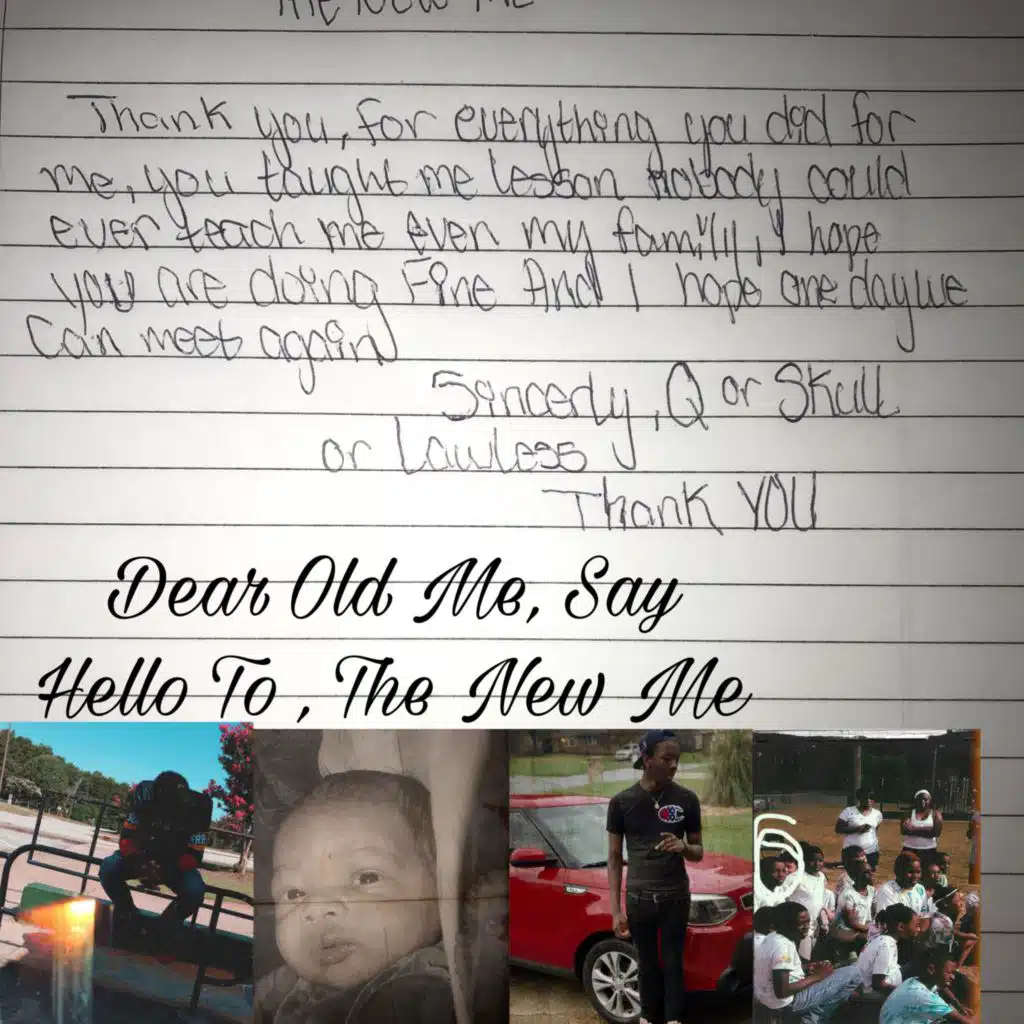 The New Me
Thank you, for everything you did for
me, you taught me lesson nobody could
ever teach me even my family, I hope
you are doing Fine And I hope one day we
Can meet again
Sincerly, Q or Skull
or Lawless
Thank YOU
Dear Old Me, Say
Hello To , The New Me